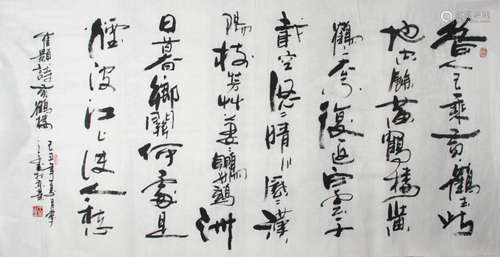 昔人已乘黄鶴去此
地空餘黄鶴樓黄
鶴一去不復返白雲千
載空悠悠晴川歷歷漢
陽樹芳草萋萋鸚鵡洲
日暮鄉關何處是
煙波江上使人愁
崔顥詩黄鶴樓
己丑年